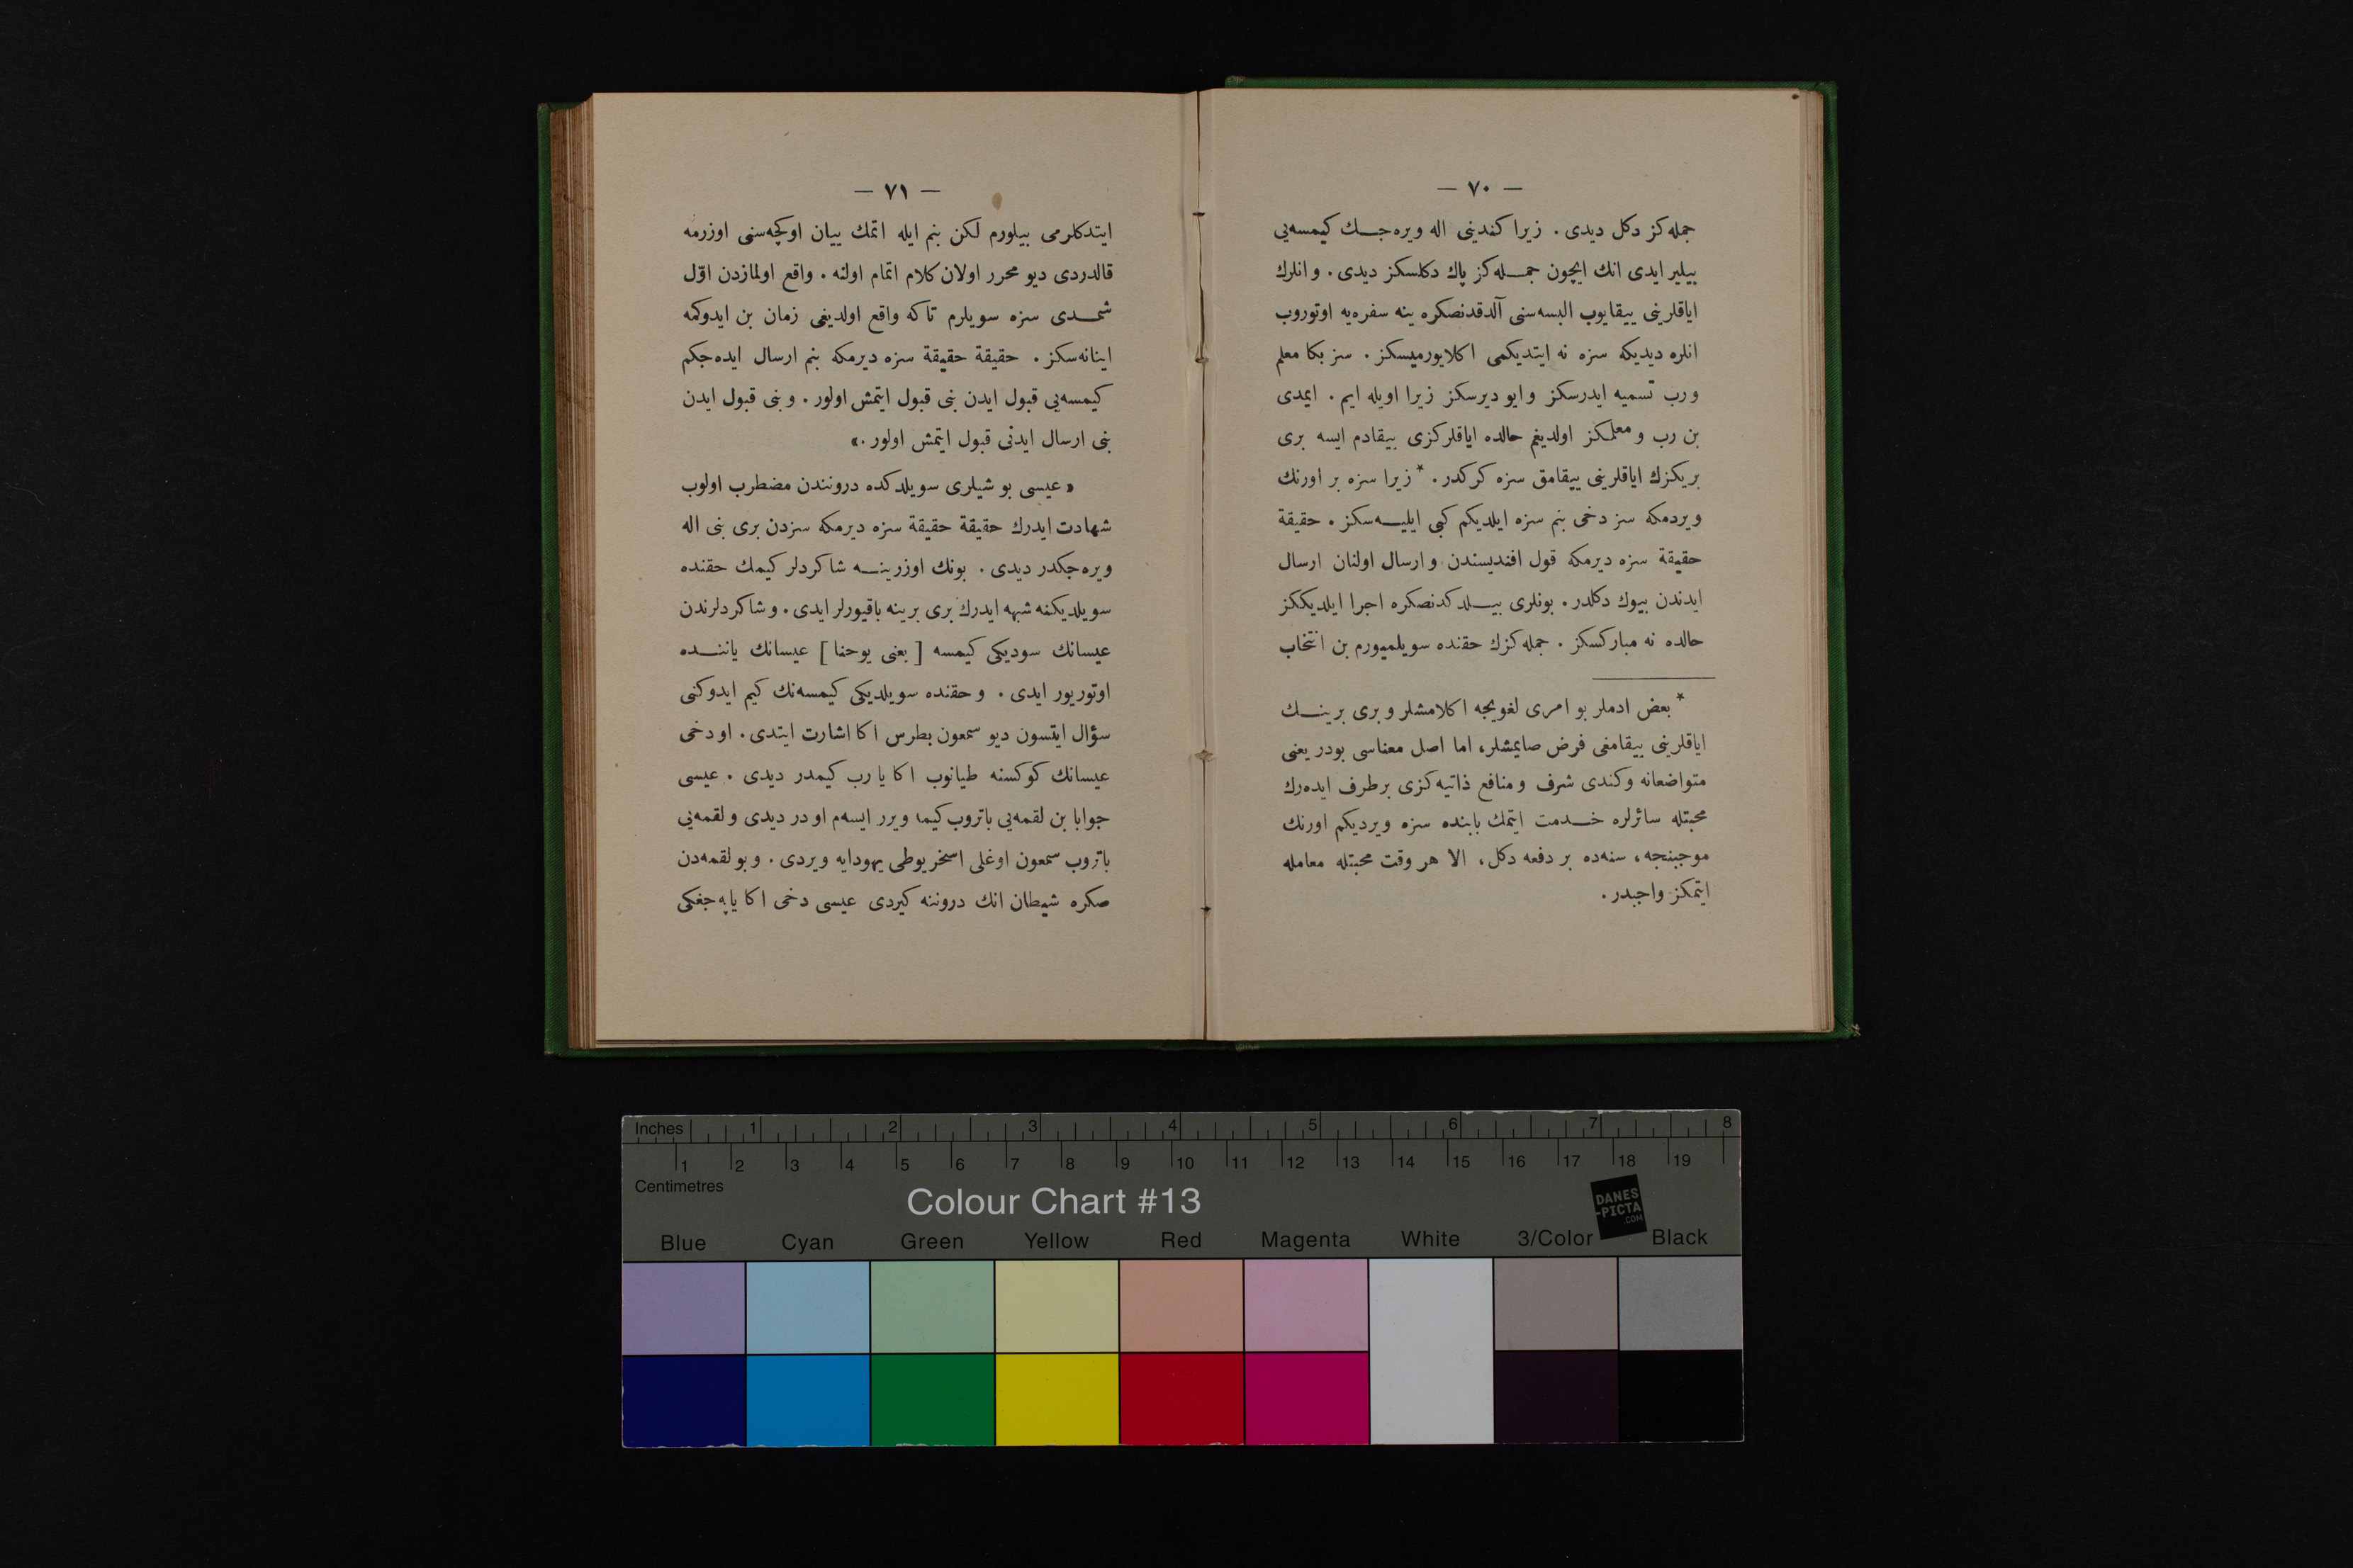 — ٧٠ —
جمله‌كز دكل ديدى . زيرا كنديني اله ويره‌جـك كيمسه‌يى
بيلير ايدى انك ايچون جمـله‌كز پاك دكلسكز ديدى . و انلرك
اياقلرينى ييقايوب البسه‌سنى آلدقدنصكره ينه سفره‌يه اوتوروب
انلره ديديكه سزه نه ايتديكمى اكلايورميسكز . سز بكا معلم
و رب تسميه ايدرسكز و ايو ديرسكز زيرا اويله ايم . ايمدى
بن رب و معلمكز اولديغم حالده اياقلركزى ييقادم ايسه برى
بريكزك اياقلرينى ييقامق سزه كركدر . * زيرا سزه بر اورنك
ويردمكه سز دخى بنم سزه ايلديكم كبى ايليـه‌سكز . حقيقة
حقيقة سزه ديرمكه قول افنديسندن و ارسال اولنان ارسال
ايدندن بيوك دكلدر . بونلرى بيـلدكدنصكره اجرا ايلديككز
حالده نه مباركسكز . جمله‌كزك حقنده سويلميورم بن انتخاب
* بعض ادملر بو امرى لغويجه اكلامشلر و برى برينـك
اياقلرينى ييقامغى فرض صايمشلر، اما اصل معناسى بودر يعنى
متواضعانه و كندى شرف و منافع ذاتيه‌كزى برطرف ايده‌رك
محبتله سائرلره خـدمت ايتمك بابنده سزه ويرديكم اورنك
موجبنجه ، سنه‌ده بر دفعه دكل ، الا هر وقت محبتله معامله
ايتمكز واجبدر .
— ٧١ —
ايتدكلرمى بيلورم لكن بنم ايله اتمك ييان اوكچه‌سنى اوزرمه
قالدردى ديو محرر اولان كلام اتمام اولنه . واقع اولمازدن اوّل
شمـدى سزه سويلرم تاكه واقع اولديغى زمان بن ايدوكمه
اينانه‌سكز . حقيقة حقيقة سزه ديرمكه بنم ارسال ايده‌جكم
كيمسه‌يى قبول ايدن بنى قبول ايتمش اولور . و بنى قبول ايدن
بنى ارسال ايدنى قبول ايتمش اولور .»
« عيسى بو شيلرى سويلدكده دروننندن مضطرب اولوب
شهادت ايدرك حقيقة حقيقة سزه ديرمكه سزدن برى بنى اله
ويره‌جكدر ديدى . بونك اوزرينـه شاكردلر كيمك حقنده
سويلديكنه شبهه ايدرك برى برينه باقيورلر ايدى . و شاكردلرندن
عيسانك سوديكى كيمسه [ يعنى يوحنا ] عيسانك ياننـده
اوتوريور ايدى . و حقنده سويلديكى كيمسه‌نك كيم ايدوكنى
سؤال ايتسون ديو سمعون بطرس اكا اشارت ايتدى . او دخى
عيسانك كوكسنه طيانوب اكا يا رب كيمدر ديدى . عيسى
جوابا بن لقمه‌يى باتروب كيمه ويرر ايسه‌م او در ديدى و لقمه‌يى
باتروب سمعون اوغلى اسخريوطى يهودايه ويردى . و بو لقمه‌دن
صكره شيطان انك دروننه كيردى عيسى دخى اكا ياپه‌جغكى
Inches 1 2 3 4 5 6 7 8
1 2 3 4 5 6 7 8 9 10 11 12 13 14 15 16 17 18 19
Centimetres
Colour Chart #13
DANES
-PICTA
.COM
Blue Cyan Green Yellow Red Magenta White 3/Color Black